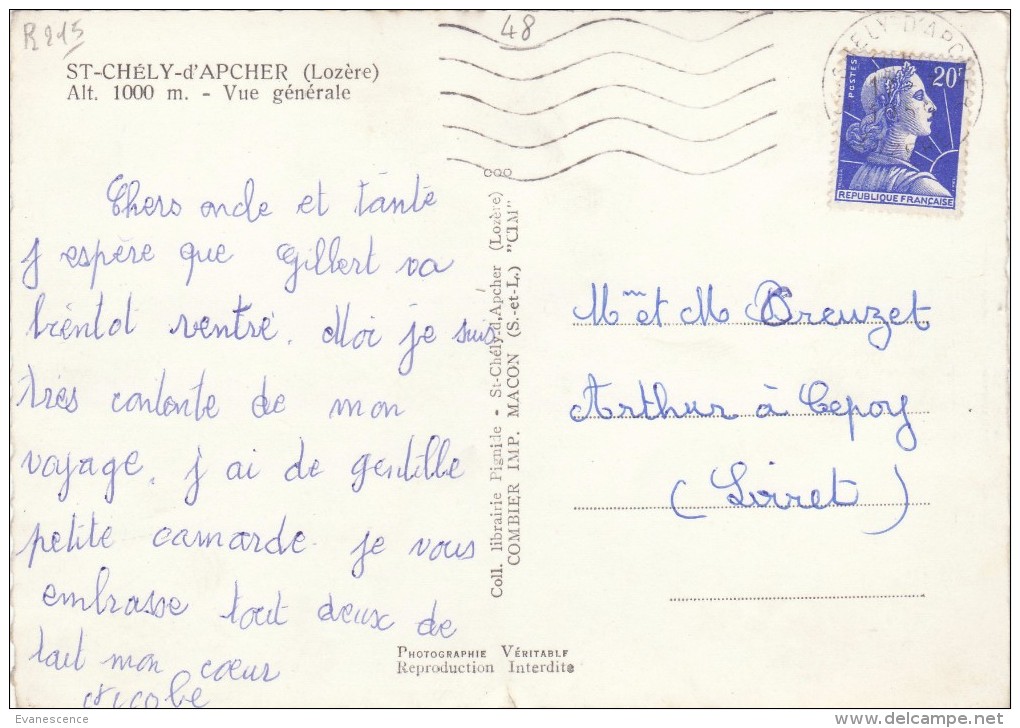 R215
48
ST-CHÉLY-d'APCHER (Lozère)
Alt. 1000 m. - Vue générale
ÉLY-D'APC
POSTES
20F
REPUBLIQUE FRANÇAISE
Chers oncle et tante
j espère que Gillert va
bientot rentré. Moi je suis
très contente de mon
voyage. j ai de gentille
petite camarde. je vous
embrasse tout deux de
tout mon cœur
Coll. librairie Pignide - St-Chély-d'Apcher (Lozère)
COMBIER IMP. MACON (S.-et-L.) "CIM"
Mme et M Breuzet
Arthur à Cepoy
(Loiret)
PHOTOGRAPHIE VÉRITABLE
Reproduction Interdite
Evanescence
delcampe.net